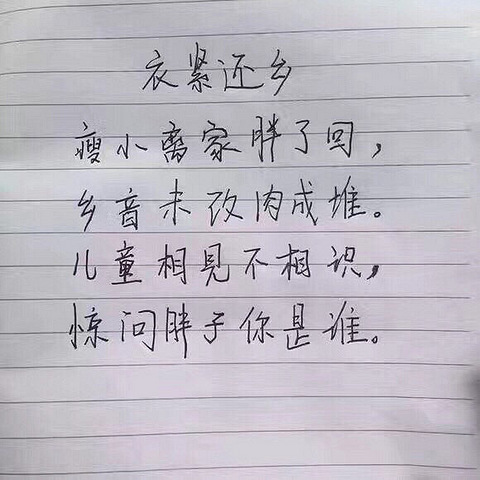 衣紧还乡
瘦小离家胖了回，
乡音未改肉成堆。
儿童相见不相识，
惊问胖子你是谁。